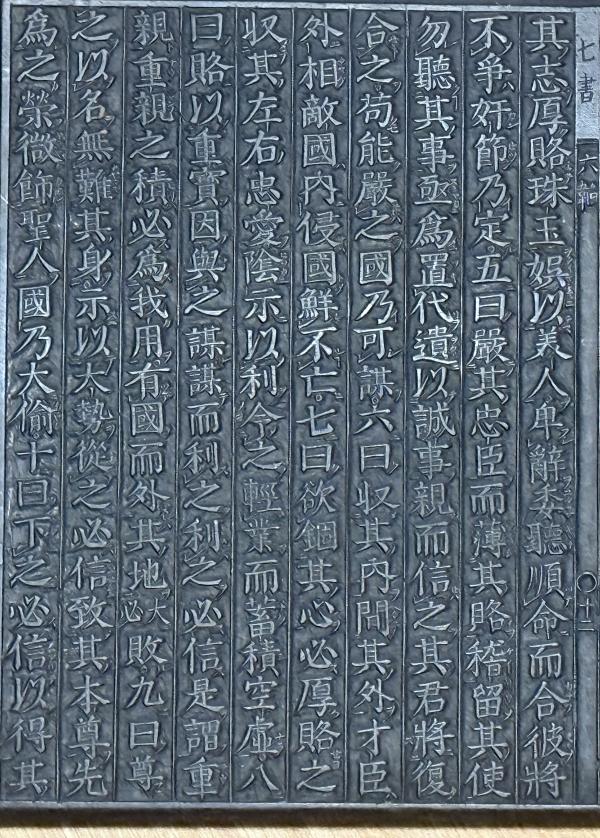 七書 六韜 〇十二
其志厚賂珠玉娯以美人卑辭委聽順命而合彼將
不爭奸節乃定五曰嚴其忠臣而薄其賂稽留其使
勿聽其事亟爲置代遺以誠事親而信之其君將復
合之苟能嚴之國乃可謀六曰収其内間其外才臣
外相敵國内侵國鮮不亡七曰欲錮其心必厚賂之
収其左右忠愛陰示以利令之輕業而蓄積空虛八
曰賂以重寶因與之謀謀而利之利之必信是謂重
親重親之積必爲我用有國而外其地大必敗九曰尊
之以名無難其身示以大勢從之必信致其本尊先
爲之榮微飾聖人國乃大偷十曰下之必信以得其